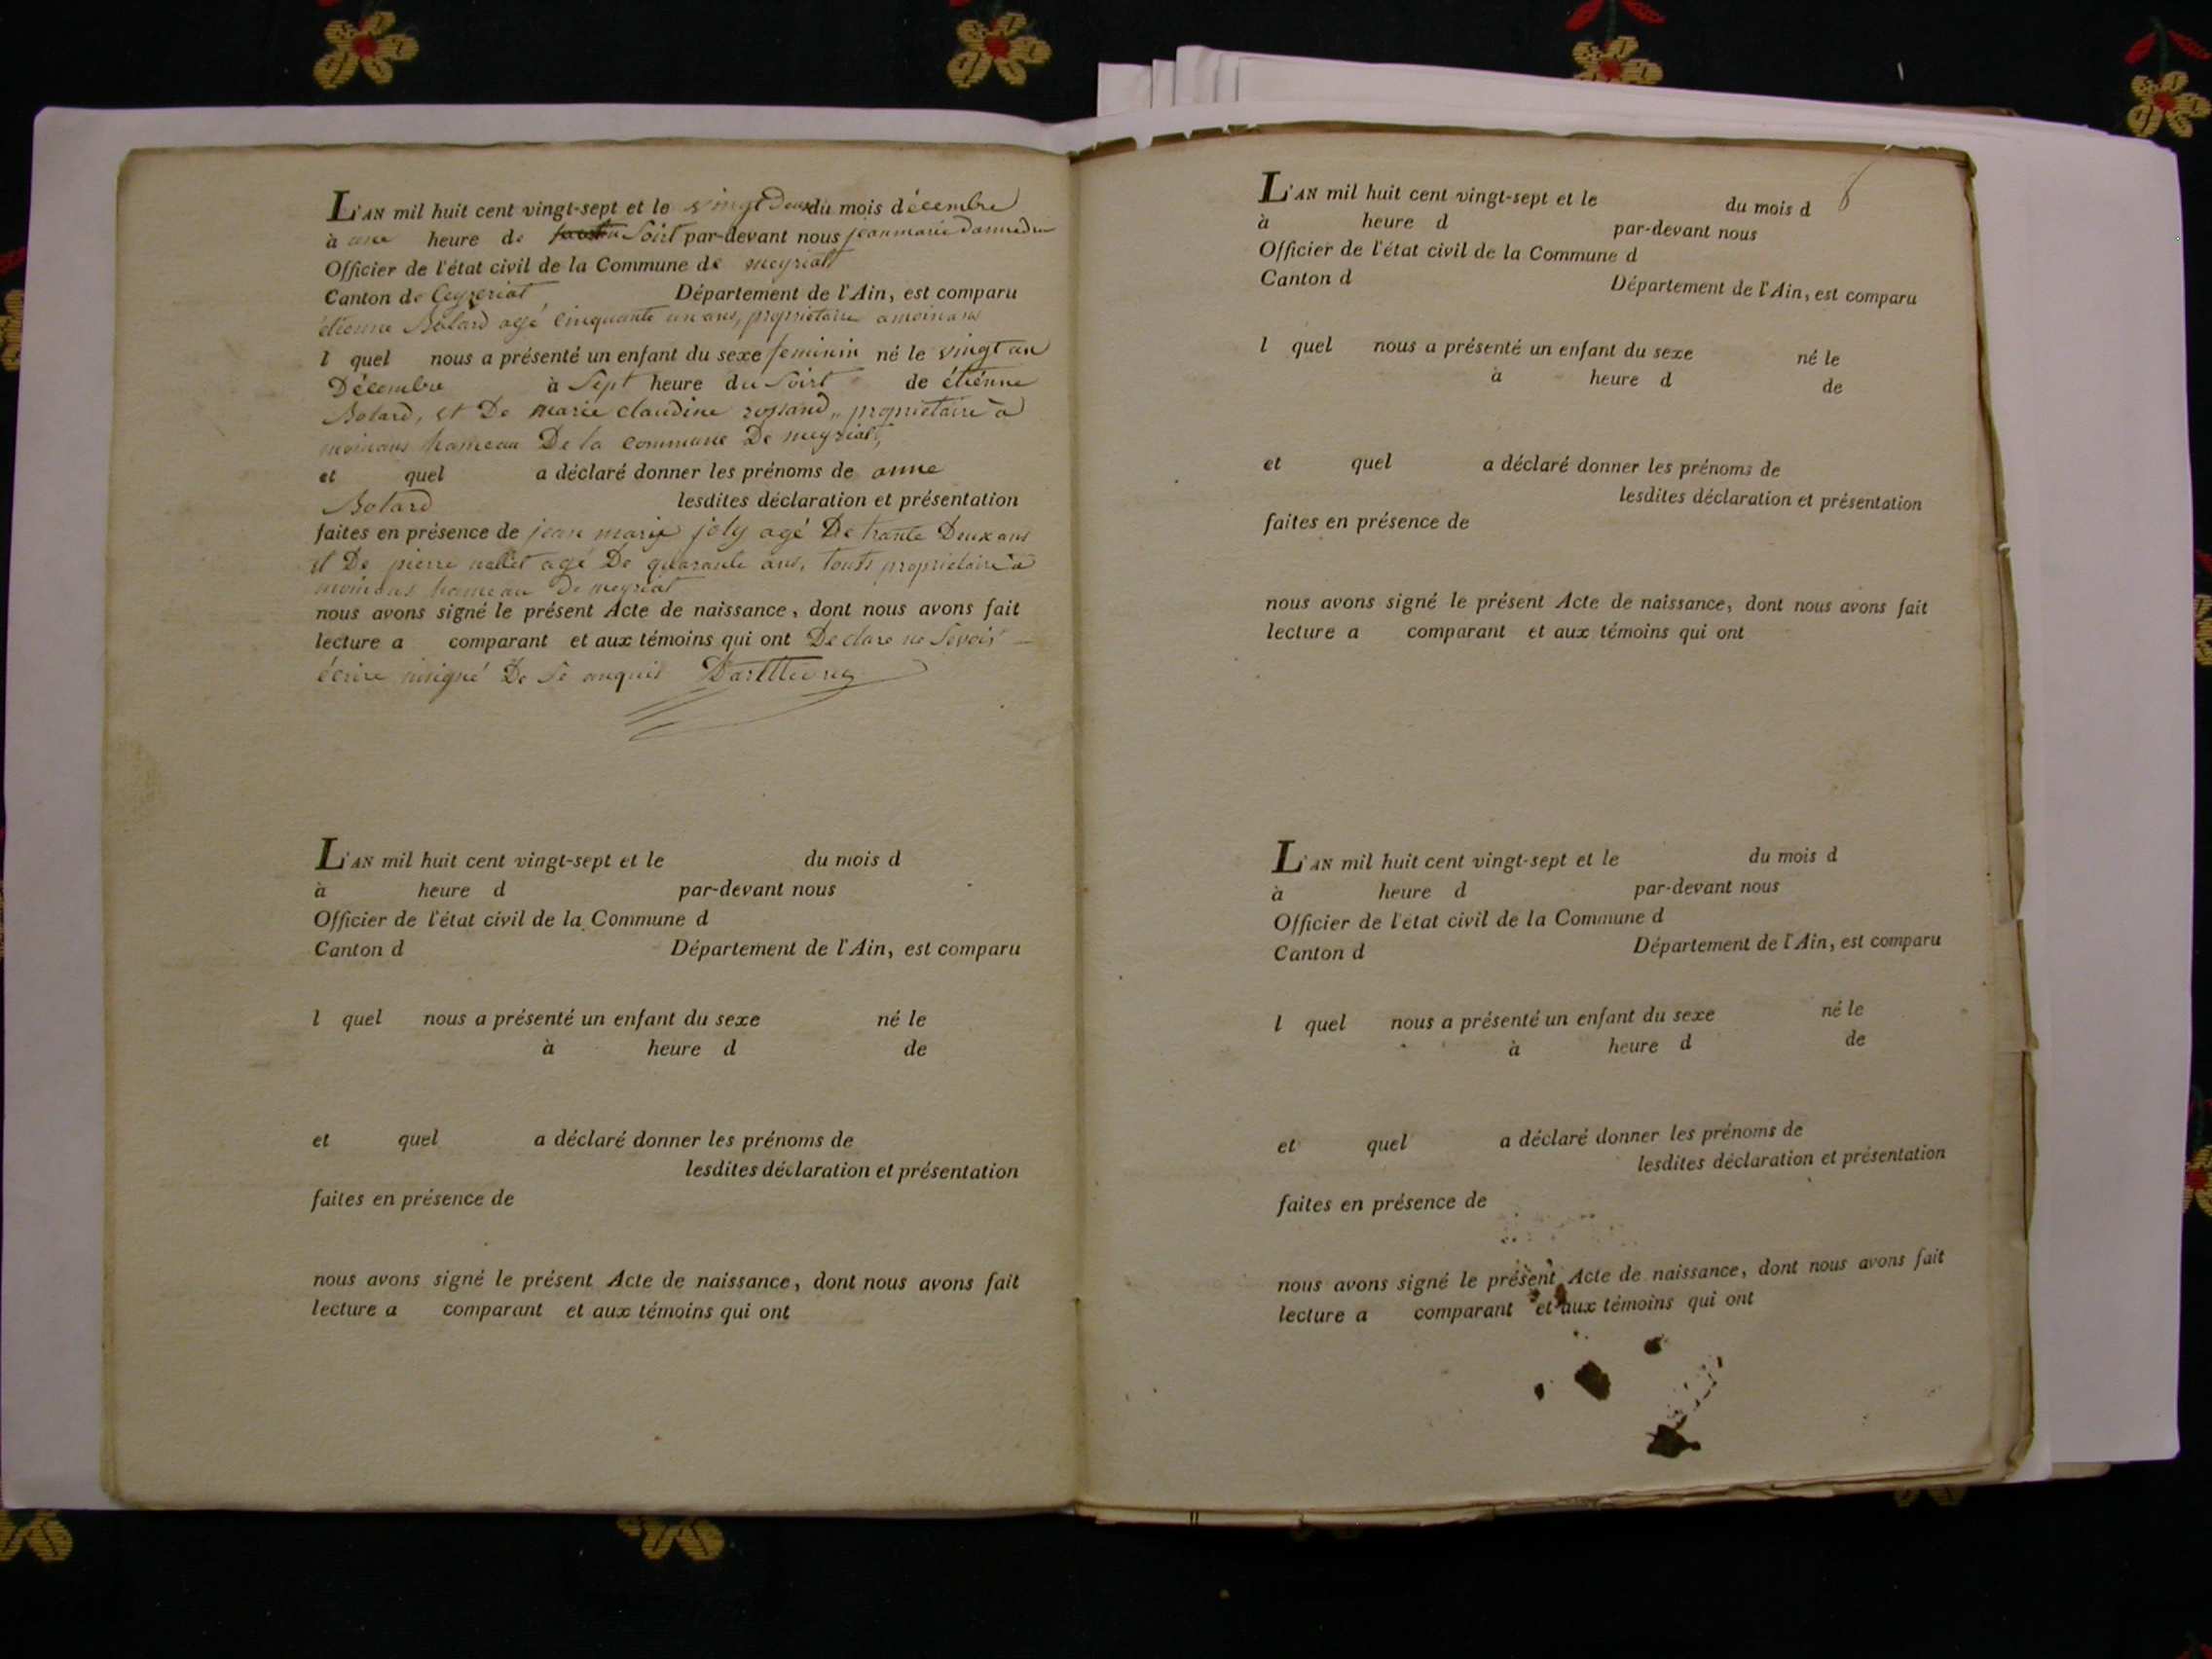 L'AN mil huit cent vingt-sept et le vingt Deux du mois décembre
à une heure de Soirt par-devant nous jean marie
Officier de l'état civil de la Commune de meyriat
Canton de Ceyzeriat, Département de l'Ain, est comparu
étienne Botard agé cinquante un ans, propriétaire a moinans
l quel nous a présenté un enfant du sexe feminin né le vingt un
Décembre à Sept heure du Soirt de étiénne
Botard, et De marie claudine propriétaire à
moinans hameau De la commune De meyriat,
et quel a déclaré donner les prénoms de anne
Botard lesdites déclaration et présentation
faites en présence de jean marie joly agé De trante Deux ans
et De pierre agé De quarante ans, touts propriétaire a
moinans hameau De meyriat
nous avons signé le présent Acte de naissance, dont nous avons fait
lecture a comparant et aux témoins qui ont De clare ne Sevoir
écrire ni signé De Se anquis
L'AN mil huit cent vingt-sept et le du mois d
à heure d par-devant nous
Officier de l'état civil de la Commune d
Canton d Département de l'Ain, est comparu
l quel nous a présenté un enfant du sexe né le
à heure d de
et quel a déclaré donner les prénoms de
lesdites déclaration et présentation
faites en présence de
nous avons signé le présent Acte de naissance, dont nous avons fait
lecture a comparant et aux témoins qui ont
L'AN mil huit cent vingt-sept et le du mois d
à heure d par-devant nous
Officier de l'état civil de la Commune d
Canton d Département de l'Ain, est comparu
l quel nous a présenté un enfant du sexe né le
à heure d de
et quel a déclaré donner les prénoms de
lesdites déclaration et présentation
faites en présence de
nous avons signé le présent Acte de naissance, dont nous avons fait
lecture a comparant et aux témoins qui ont
L'AN mil huit cent vingt-sept et le du mois d
à heure d par-devant nous
Officier de l'état civil de la Commune d
Canton d Département de l'Ain, est comparu
l quel nous a présenté un enfant du sexe né le
à heure d de
et quel a déclaré donner les prénoms de
lesdites déclaration et présentation
faites en présence de
nous avons signé le présent Acte de naissance, dont nous avons fait
lecture a comparant et aux témoins qui ont